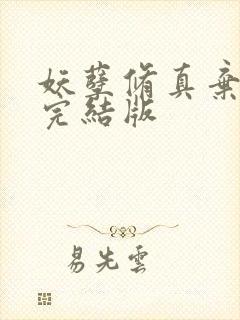 妖孽脩真棄
完結版
易先雲